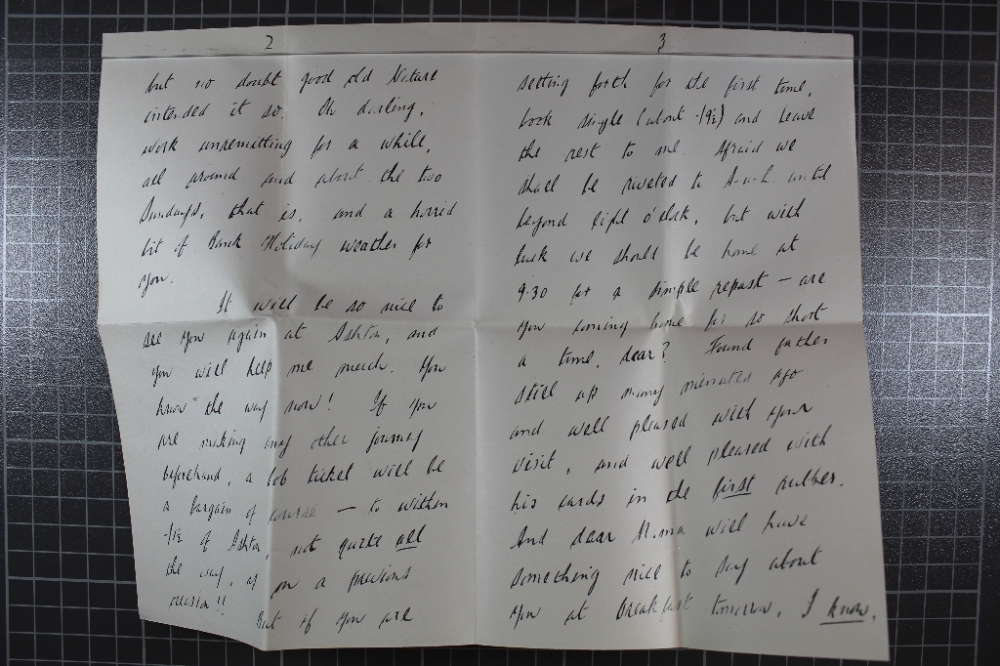 2
but no doubt good old Nature
intended it so. Oh darling,
work unremitting for a while,
all around and about the two
Sundays, that is, and a horrid
bit of Bank Holiday weather for
you.
It will be so nice to
see you again at Ashton, and
you will help me much. You
know the way now! If you
are making any other journey
beforehand, a bob ticket will be
a bargain of course — to within
-/1½ of Ashton, not quite all
the way, as on a previous
occasion!!
But if you are
3
setting forth for the first time,
book single (about -/9½) and leave
the rest to me. Afraid we
shall be riveted to A-u-L until
beyond eight o'clock, but with
luck we should be home at
9.30 for a simple repast — are
you coming home for so short
a time, dear? Found father
still up many minutes ago
and well pleased with your
visit, and well pleased with
his cards in the first rubber.
And dear Mama will have
something nice to say about
you at breakfast tomorrow, I know.